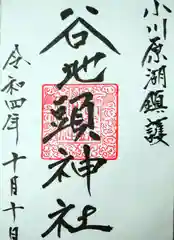 小川原湖鎮護
谷地頭神社
令和四年 十月十日